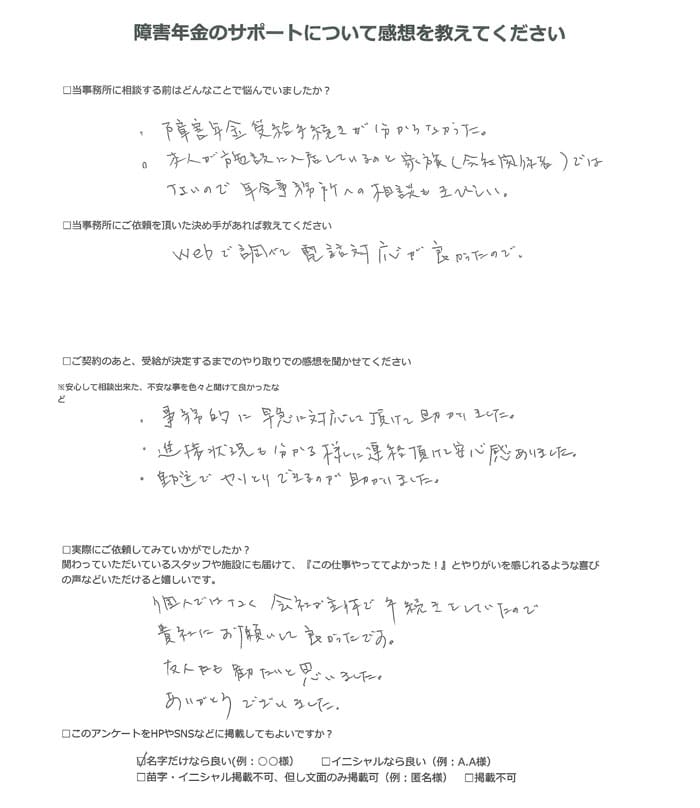 障害年金のサポートについて感想を教えてください
□当事務所に相談する前はどんなことで悩んでいましたか？
・障害年金受給手続きが分からなかった。
・本人が施設に入居しているのと家族(会社関係者)では
ないので年金事務所への相談もきびしい。
□当事務所にご依頼を頂いた決め手があれば教えてください
webで調べて電話対応が良かったので。
□ご契約のあと、受給が決定するまでのやり取りでの感想を聞かせてください
※安心して相談出来た、不安な事を色々と聞けて良かったな
ど
・事務的に早急に対応して頂けて助かりました。
・進捗状況も分かる様に連絡頂けて安心感ありました。
・郵送でやりとりできるのが助かりました。
□実際にご依頼してみていかがでしたか？
関わっていただいているスタッフや施設にも届けて、『この仕事やっててよかった！』とやりがいを感じれるような喜び
の声などいただけると嬉しいです。
個人ではなく会社が主体で手続きをしていたので
貴社にお願いして良かったです。
友人にも勧たいと思いました。
ありがとうございました。
□このアンケートをHPやSNSなどに掲載してもよいですか？
☑名字だけなら良い(例：○○様)　□イニシャルなら良い（例：A.A様）
□苗字・イニシャル掲載不可、但し文面のみ掲載可（例：匿名様）　□掲載不可